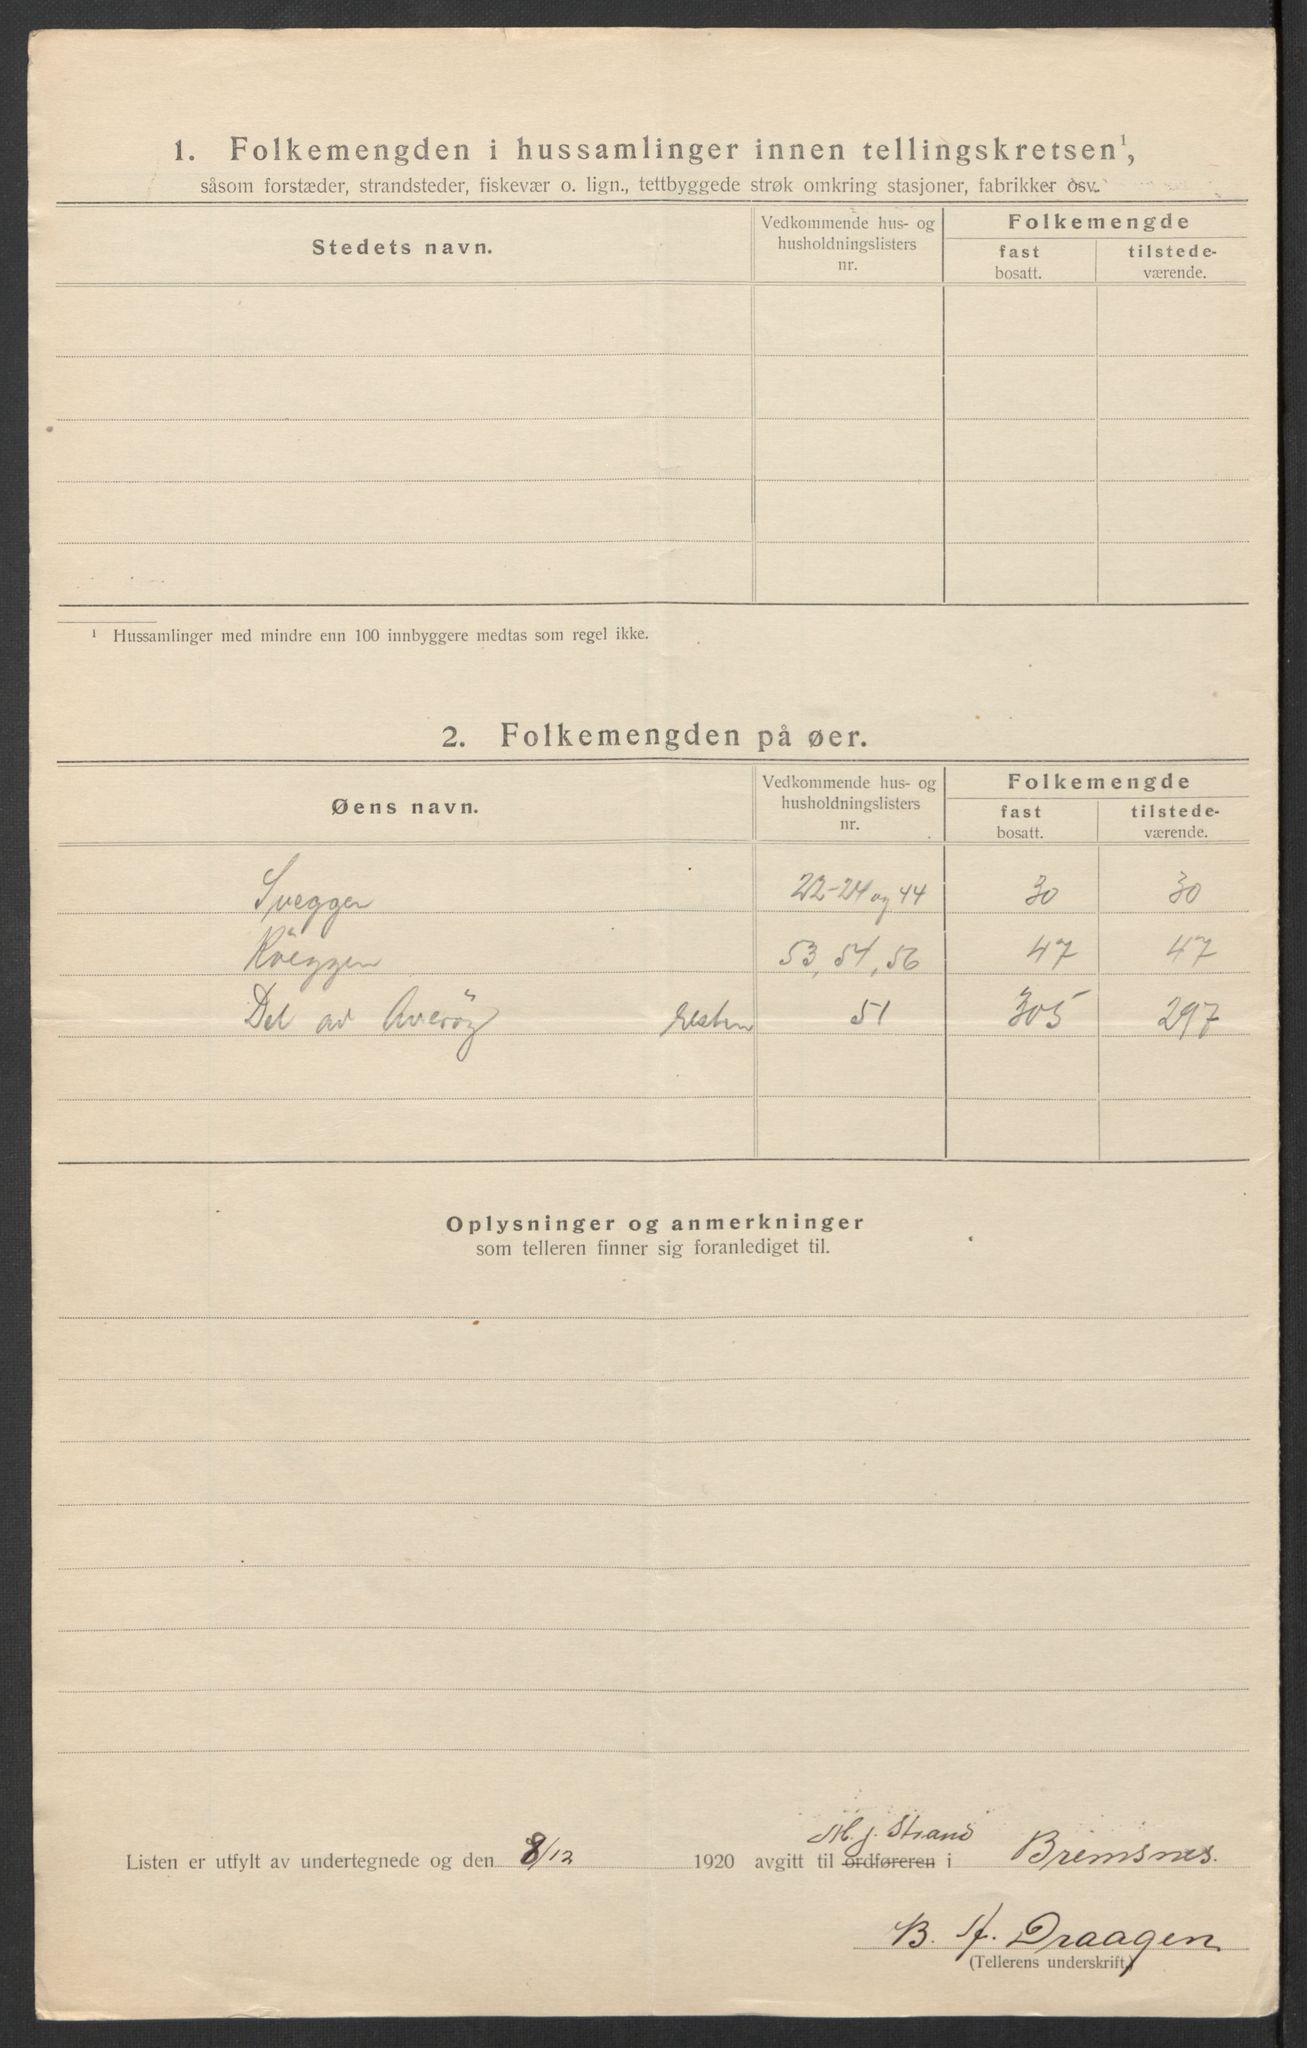 1. Folkemengden i hussamlinger innen tellingskretsen¹,
såsom forstæder, strandsteder, fiskevær o. lign., tettbyggede strøk omkring stasjoner, fabrikker osv.
Stedets navn.
Vedkommende hus- og
husholdningslisters
nr.
Folkemengde
fast
bosatt.
tilstede-
værende.
¹ Hussamlinger med mindre enn 100 innbyggere medtas som regel ikke.
2. Folkemengden på øer.
Øens navn.
Vedkommende hus- og
husholdningslisters
nr.
Folkemengde
fast
bosatt.
tilstede-
værende.
Sveggen 22-24 og 44 30 30
53, 54, 56 47 47
Del av Averöy resten 51 305 297
Oplysninger og anmerkninger
som telleren finner sig foranlediget til.
M. J. Strand
Listen er utfylt av undertegnede og den 8/12 1920 avgitt til ordføreren i Bremsnes.
B. Draagen
(Tellerens underskrift.)